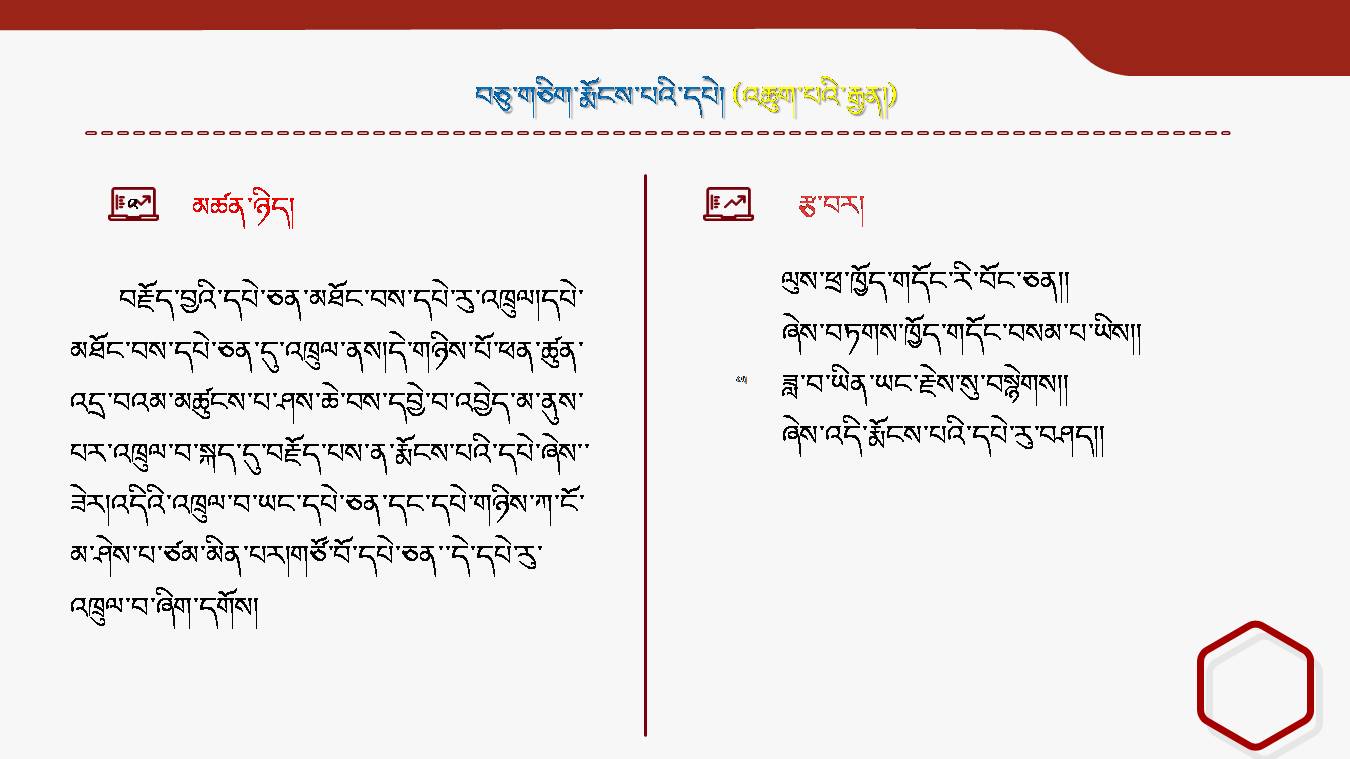 བཅུ་གཅིག་རྨོངས་པའི་དཔེ། (འཆུག་པའི་རྒྱན།)
མཚན་ཉིད།
བརྗོད་བྱའི་དཔེ་ཅན་མཐོང་བས་དཔེ་རུ་འཁྲུལ།དཔེ་
མཐོང་བས་དཔེ་ཅན་དུ་འཁྲུལ་ནས།དེ་གཉིས་པོ་ཕན་ཚུན་
འདྲ་བའམ་མཚུངས་པ་ཤས་ཆེ་བས་དབྱེ་བ་འབྱེད་མ་ནུས་
པར་འཁྲུལ་བ་སྐད་དུ་བརྗོད་པས་ན་རྨོངས་པའི་དཔེ་ཞེས་་
ཟེར།འདིའི་འཁྲུལ་བ་ཡང་དཔེ་ཅན་དང་དཔེ་གཉིས་ཀ་ངོ་
མ་ཤེས་པ་ཙམ་མིན་པར།གཙོ་བོ་དཔེ་ཅན་་དེ་དཔེ་རུ་
འཁྲུལ་བ་ཞིག་དགོས།
རྩ་བར།
ལུས་ཕྲ་ཁྱོད་གདོང་རི་བོང་ཅན།།
ཞེས་བཏགས་ཁྱོད་གདོང་བསམ་པ་ཡིས།།
ཟླ་བ་ཡིན་ཡང་རྗེས་སུ་བསྙེགས།།
ཞེས་འདི་རྨོངས་པའི་དཔེ་རུ་བཤད།།